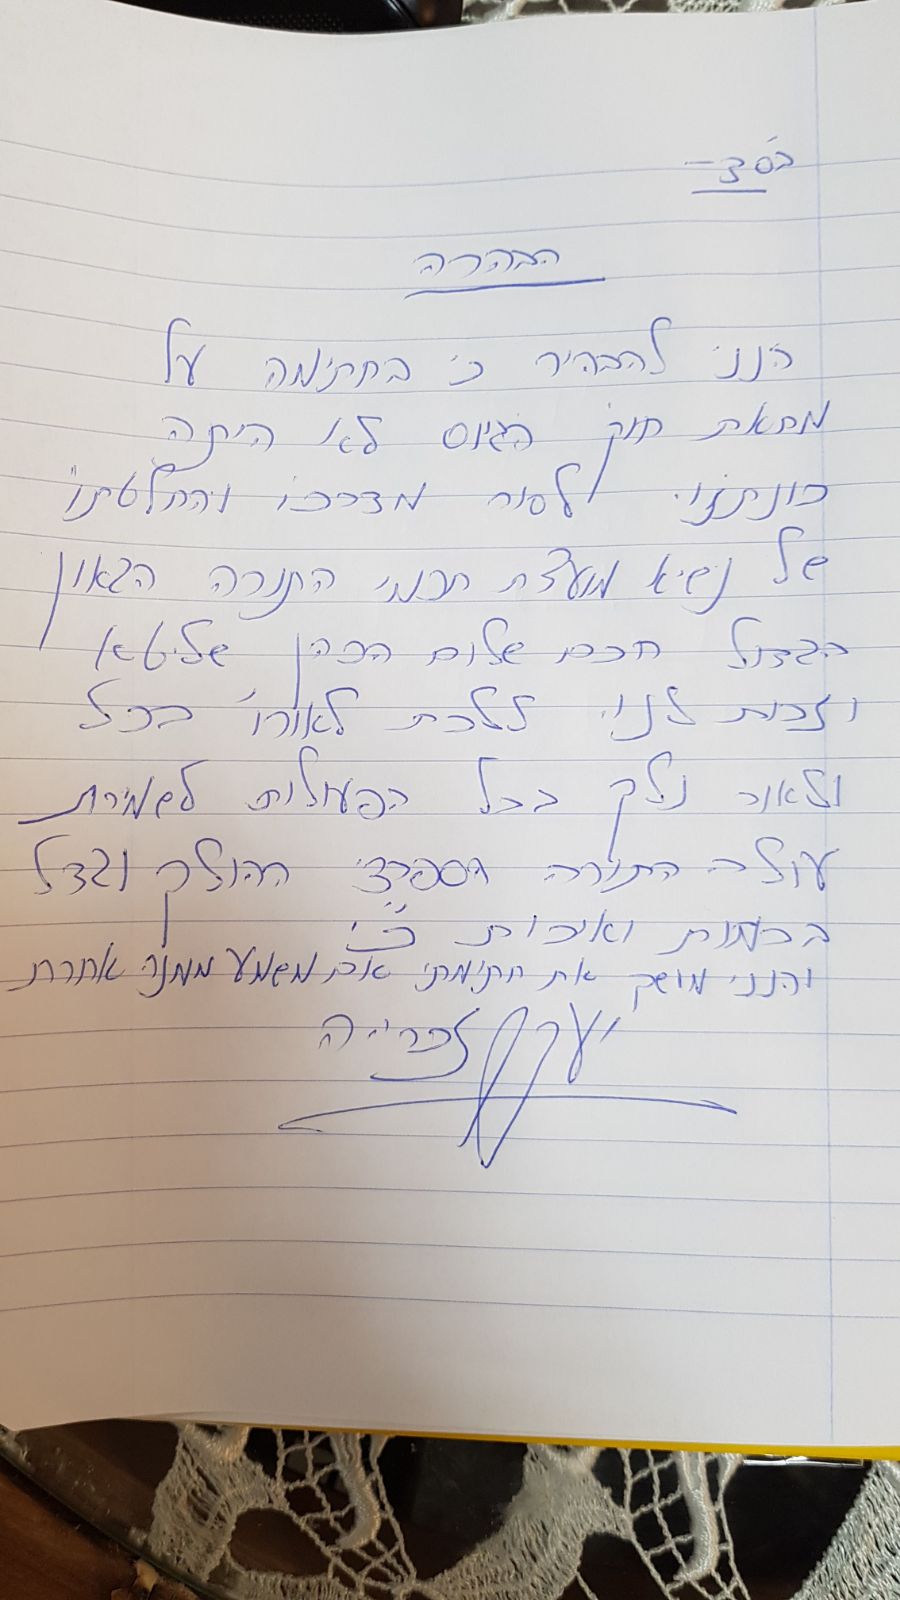 בס"ד
הבהרה
הנני להבהיר כי בחתימה על
מחאת חוק הגיוס לא היתה
כונתנו לסור מדרכו והחלטתו
של נשיא מועצת חכמי התורה הגאון
הגדול חכם שלום הכהן שליטא
וזכות לנו ללכת לאורו בכל
ולאור נלך בכל הפעולות לשמירת
עולם התורה הספרדי ההולך וגדל
בכמות ואיכות כ"י
והנני מושך את חתימתי אם משמע ממנה אחרת
יעקב זכריה